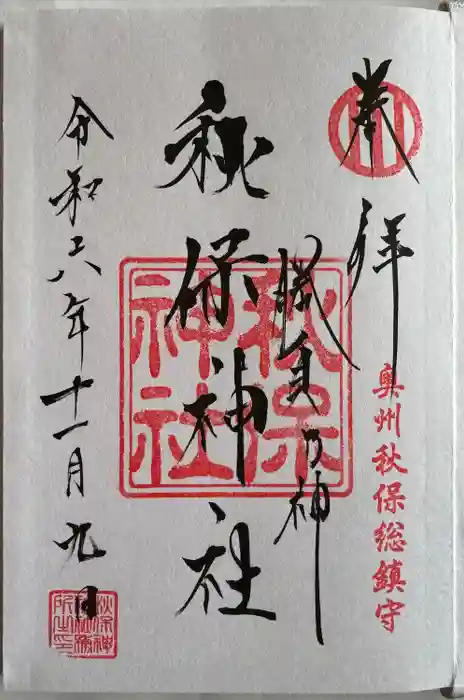 奉拝
奥州秋保総鎮守
勝負の神
秋保神社
秋保神社
令和六年十一月九日
秋保神社社務所之印